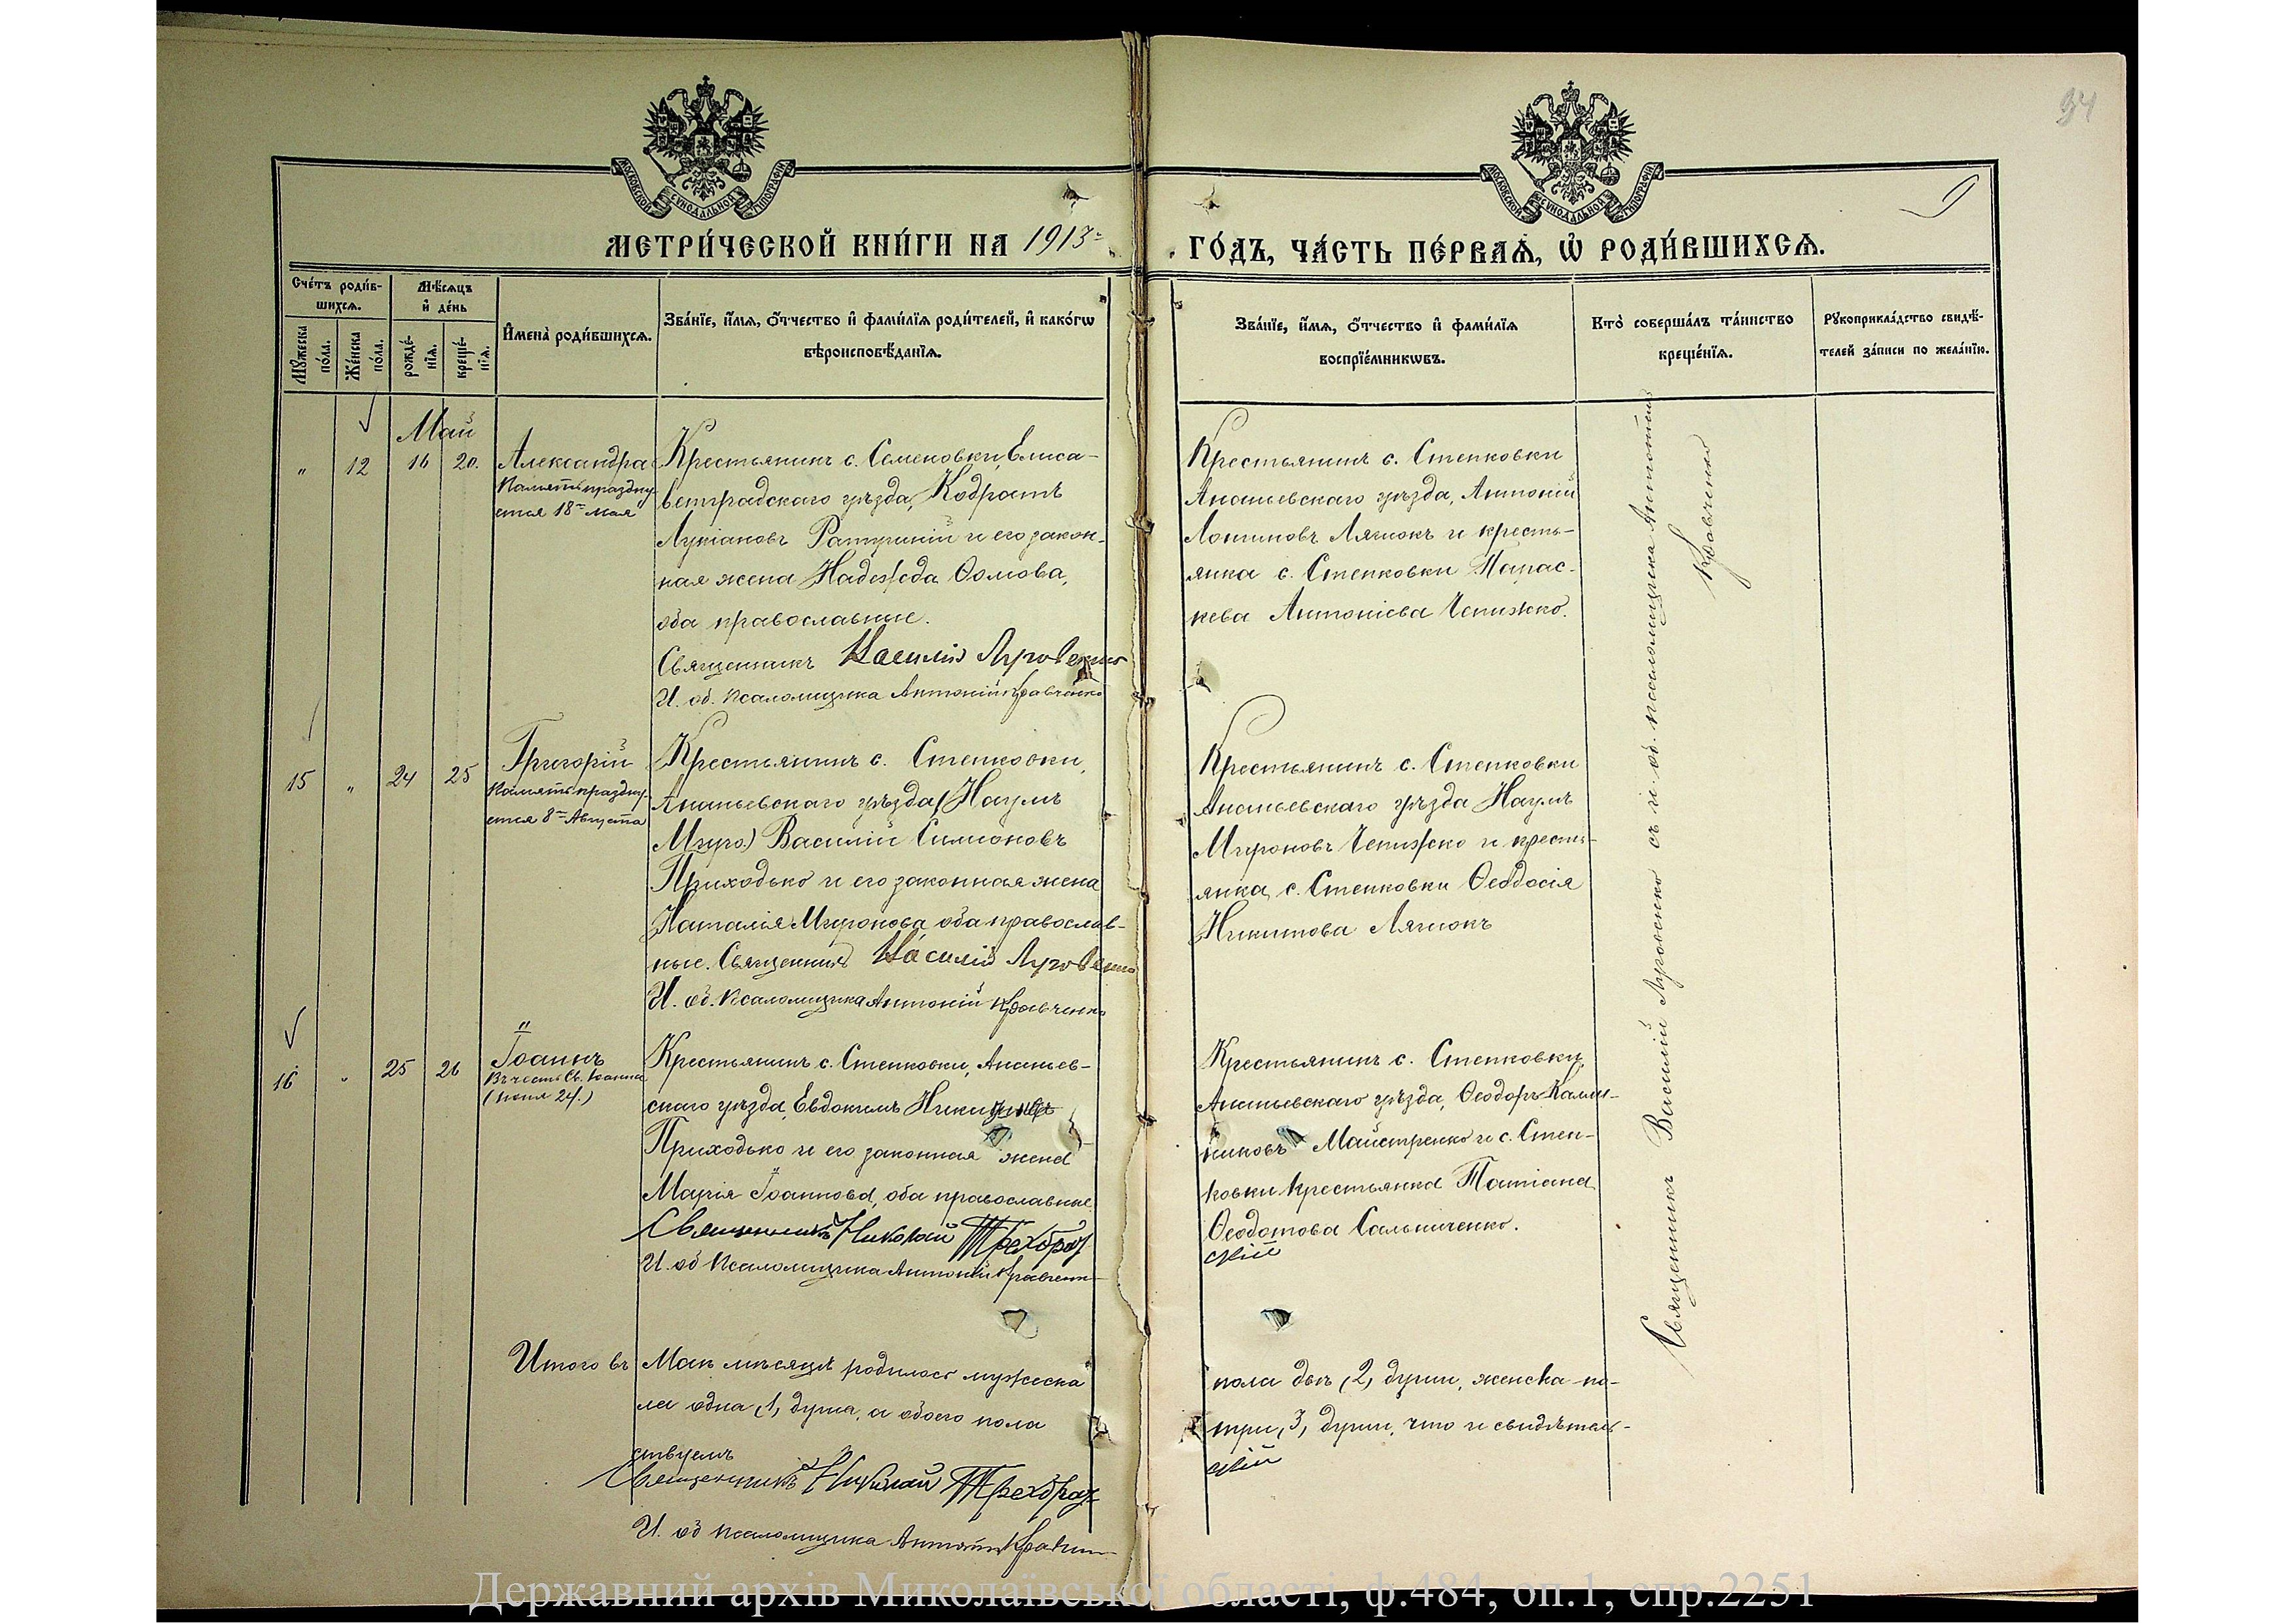 94
9
МЕТРИ́ЧЕСКОЙ КНИ́ГИ НА 1913
ГО́ДЪ, ЧА́СТЬ ПЕ́РВАѦ, Ѽ РОДИ́ВШИХСѦ.
Сче́тъ роди́в-
шихсѧ.
Мꙋжеска
по́ла.
Же́нска
по́ла.
Мѣ́сѧцъ
и҆ де́нь
рожде́-
нїѧ.
креще́-
нїѧ.
И҆мена̀ роди́вшихсѧ.
Зва́нїе, и҆́мѧ, ѻ҆́тчество и҆ фами́лїѧ роди́телей, и҆ како́гѡ
вѣроисповѣ́данїѧ.
Зва́нїе, и҆́мѧ, ѻ҆́тчество и҆ фами́лїѧ
воспрїе́мникѡвъ.
Кто̀ соверша́лъ та́инство
креще́нїѧ.
Рꙋкоприкла́дство свидѣ́-
телей за́писи по жела́нїю.
Май
" 12 16 20.
Александра
Память праздну-
ется 18го Мая
Крестьянинъ с. Семеновки, Елиса-
ветградскаго уѣзда, Кодратъ
Лукіановъ Ратушній и его закон-
ная жена Надежда Ѳомова,
оба православные.
Священникъ Василій Луговенко
И. об. Псаломщика Антоній Кравченко
Крестьянинъ с. Степковки
Ананьевскаго уѣзда, Антоній
Логиновъ Ляшокъ и кресть-
янка с. Степковки Парас-
кева Антоніева Чепижко.
Священникъ Василій Луговенко съ и. об. псаломщика Антоніемъ
Кравченко
15 " 24 25
Григорій
Память праздну-
ется 8го Августа
Крестьянинъ с. Степковки,
Ананьевскаго уѣзда (Наумъ
Миро.) Василій Симоновъ
Приходько и его законная жена
Наталія Миронова, оба православ-
ные. Священникъ Василій Луговенко
И. об. Псаломщика Антоній Кравченко
Крестьянинъ с. Степковки
Ананьевскаго уѣзда Наумъ
Мироновъ Чепижко и кресть-
янка с. Степковки Ѳеодосія
Никитова Ляшокъ
16 " 25 26
Іоаннъ
Въ честь Св. Іоанна
(Іюня 24.)
Крестьянинъ с. Степковки, Ананьев-
скаго уѣзда, Евдокимъ
Приходько и его законная жена
Марія Іоаннова, оба православные.
Священникъ Николай Трехбраз
И. об Псаломщика Антоній Кравченко
Крестьянинъ с. Степковки,
Ананьевскаго уѣзда, Ѳеодоръ Калли-
никовъ Майстренко и с. Степ-
ковки крестьянка Татіана
Ѳеодотова Сальниченко.
скій
Итого въ Маѣ мѣсяцѣ родилось мужеска
пола двѣ (2) души, женска по-
ла одна (1) душа, а обоего пола
три (3) души, что и свидѣтель-
ствуемъ
Священникъ Николай Трехбраз
скій
И. об псаломщика Антоній Кравченко
Державний архів Миколаївської області, ф.484, оп.1, спр.2251